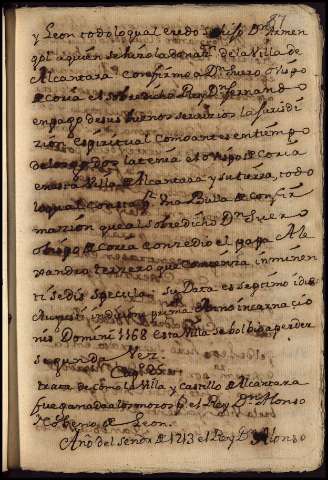 87
y Leon todo lo qual eredo su hijo Dn Armen
gol aquien se hiço la donaçn de la Villa de
Alcantara. Confirmo a Dn Suero obispo
de Coria el sobredicho Rey Dn fernando
en pago de sus buenos serviçios la Jurisdi
zion espiritual como antes en tiempo
de los godos la tenia el obispo de Coria
en esta Villa de Alcantara y su tierra, todo
lo qual consta pr Una Bulla de Confir
maçion que al sobredicho Dn Suero
obispo de Coria Conzedio el papa Ale
xandro terzero que Comienza in minen
ti sedis specula su Data es septimo idus
Augusti indiçion prima Anno incarnacio
nis Domini 1168 esta Villa se bolbio a perder
segunda Vez.
trata de como la Villa y Castillo de Alcantara
fue ganada a los moros pr el Rey Dn Alonso
Nobeno de Leon.
Año del señor de 1213 el Rey Dn Alonso